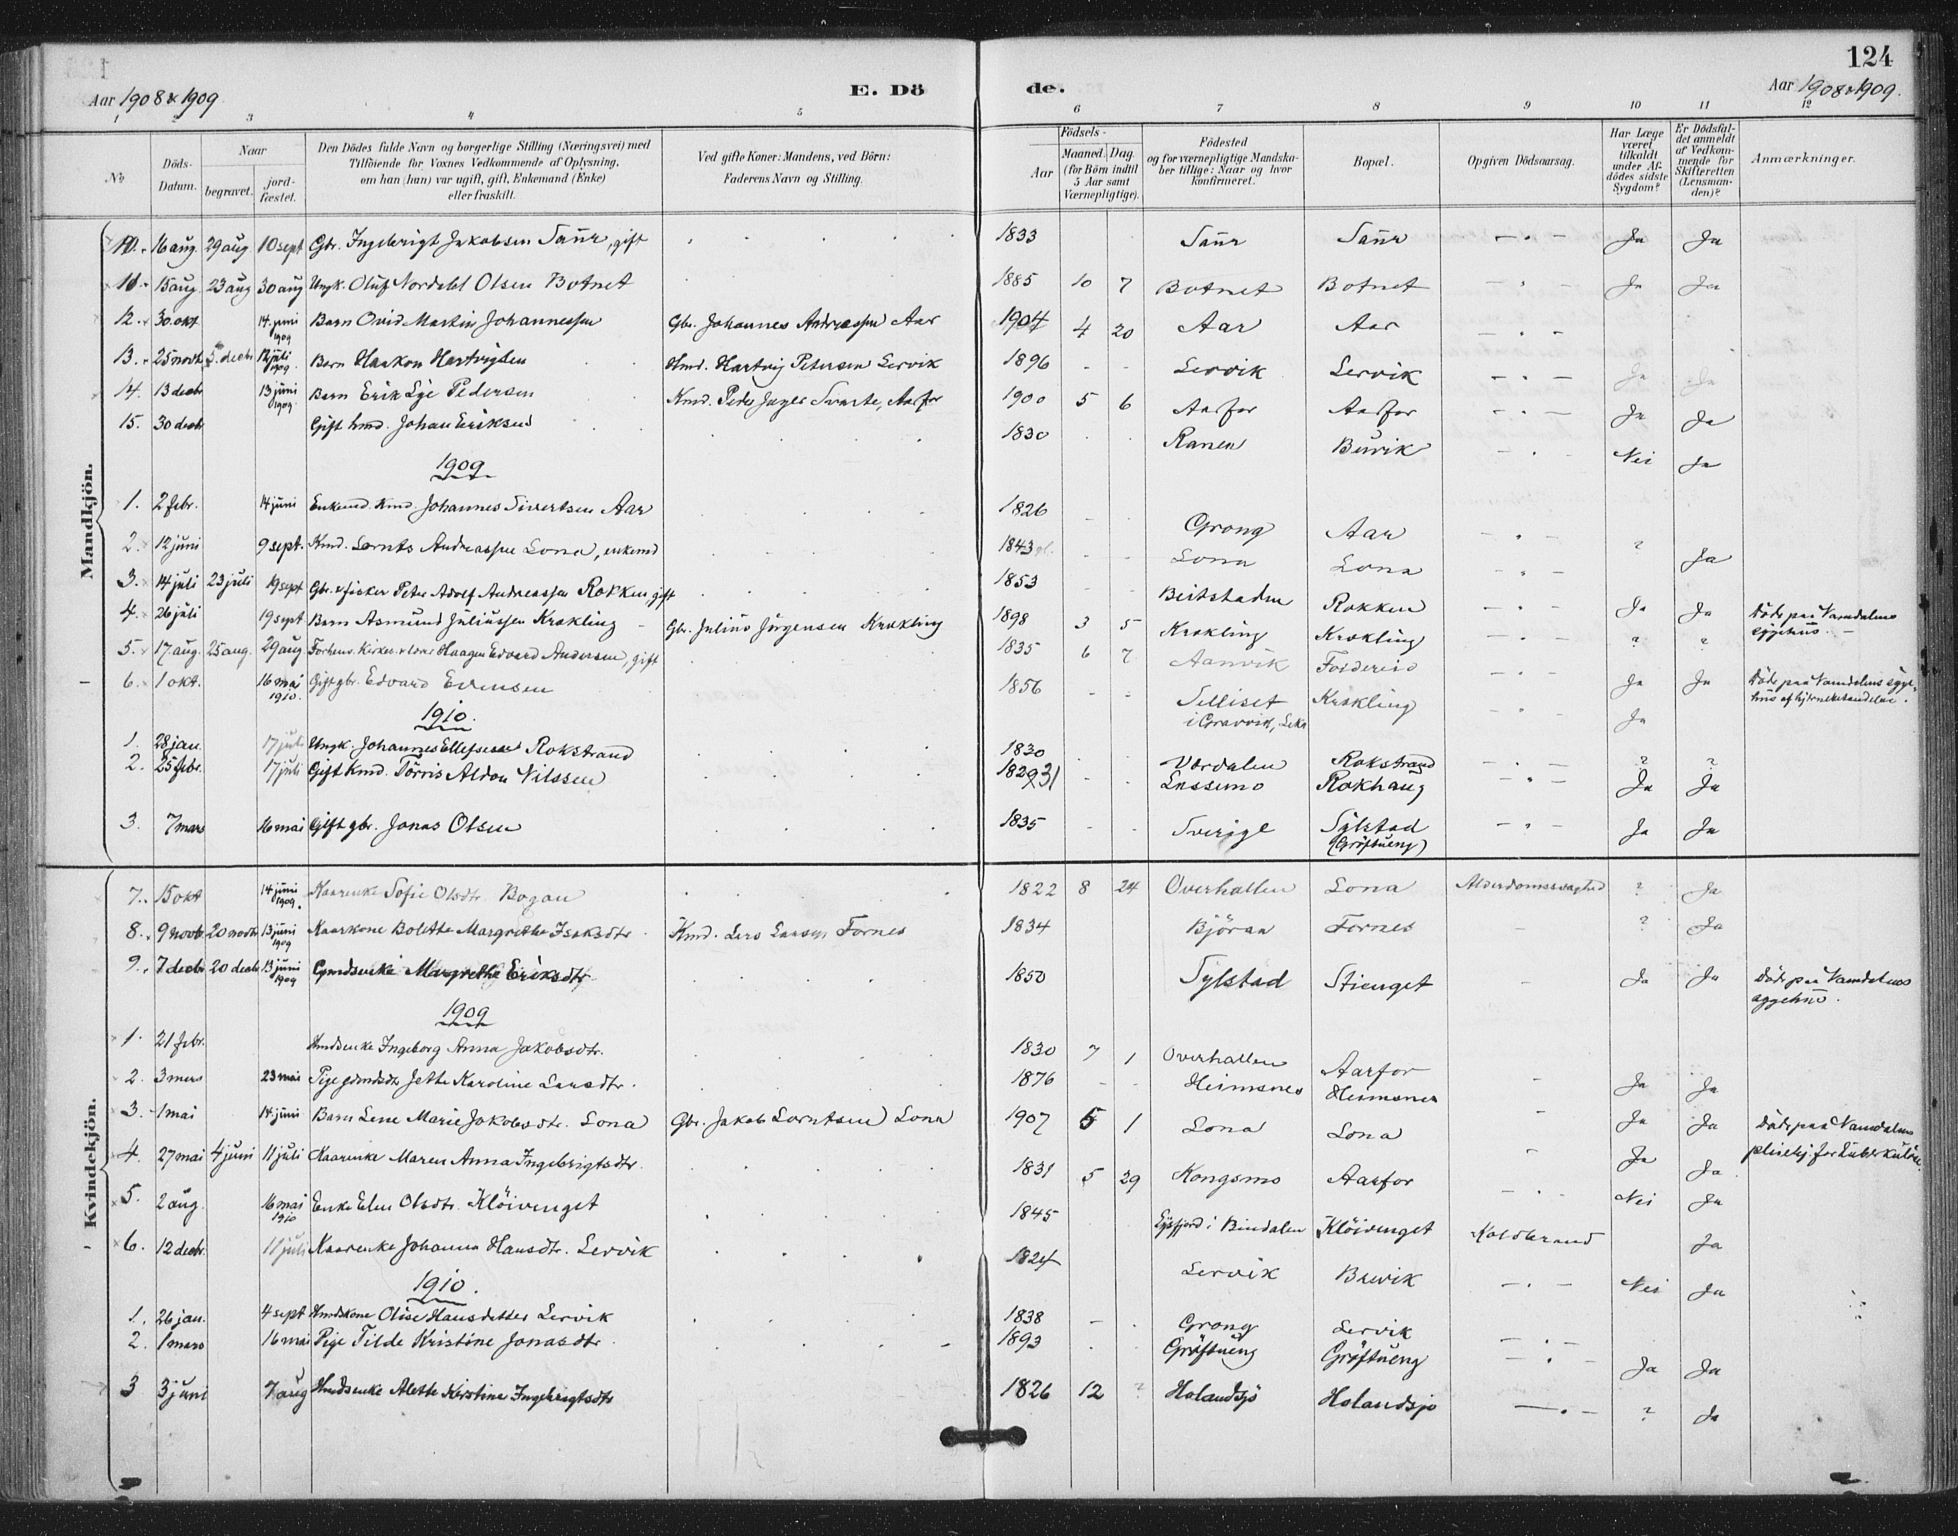 124
Aar 1908 & 1909
E. Dö de.
Aar 1908 & 1909.
1 2 3 4 5 6 7 8 9 10 11 12
No
Döds-Datum.
Naar
begravet.
jord-fæstet.
Den Dödes fulde Navn og borgerlige Stilling (Næringsvei) med
Tilföiende for Voxnes Vedkommende af Oplysning,
om han (hun) var ugift, gift, Enkemand (Enke)
eller fraskilt.
Ved gifte Koner: Mandens, ved Börn:
Faderens Navn og Stilling.
Födsels-
Aar
Maaned. Dag
(for Börn indtil
5 Aar samt
Værnepligtige).
Födested
og for værnepligtige Mandska-
ber tillige: Naar og hvor
konfirmeret.
Bopæl.
Opgiven Dödsaarsag.
Har Læge
været
tilkaldt
under Af-
dödes sidste
Sygdom?
Er Dödsfal-
det anmeldt
af Vedkom-
mende for
Skifteretten
(Lensman-
den)?
Anmærkninger.
Mandkjön.
10. 16 aug. 29 aug 10 sept Gbr. Ingebrigt Jakobsen Saur, gift 1833 Saur Saur Ja Ja
11. 15 aug. 23 aug 30 aug Ungk. Oluf Nordahl Olsen Botnet 1885 10 7 Botnet Botnet Ja Ja
12. 30. okt. 14. juni 1909 Barn Ovid Martin Johannessen Gbr. Johannes Andreassen Aar 1904 4 20 Aar Aar
13. 25 novbr. 5 decbr 12 juli 1909. Barn Haakon Hartvigsen Hmd. Hartvig Petersen Lervik 1896 Lervik Lervik Ja Ja
14. 13 decbr 13 juni 1909 Barn Erik Lye Pedersen Kmd. Peder Svarte, Aarfor 1900 5 6 Aarfor Aarfor Ja Ja
15. 30 decbr Gift hmd. Johan Eriksen 1830 Ranen Burik Nei Ja
1909
1. 2 febr. 14 juni Enkemd. Kmd. Johannes Sivertsen Aar 1826 Grong Aar ?
2. 12 juni 9 sept. Kmd. Lornts Andreassen Lona, enkemd 1843 Lona Lona Ja
3. 14 juli 23 juli 19 sept Gbr. & fisker Peter Adolf Andreassen Rokken, gift 1853 Beitstaden Rokken Ja Ja Döde paa Namdalens sygehus.
4. 26 juli 19 sept Barn Asmund Juliussen Krækling Gbr. Julius Jörgensen Krækling 1898 3 5 Krækling Krækling ? ?
5. 17 aug. 25 aug. 29 aug. Haagen Edvard Andersen, gift 1835 6 7 Aanvik Foldereid Ja Ja Döde paa Namdalens syge-
6. 1 okt. 16 mai 1910. Gift gbr. Edvard Evensen 1856 Selliset i Gravvik, Leka Krækling Ja
1910.
1. 28 jan. 17 juli Ungk. Johannes Ellefsen Rokstrand 1830 Værdalen Rokstrand ? ?
2. 25 febr. 17 juli Gift Kmd. Törris Aldon Nilssen 1829 31 Lassemo Rokhaug Ja Ja
3. 7 mars 16 mai Gift gbr. Jonas Olsen 1835 Sverige Sylstad (Gröftueng) Ja Ja
Kvindekjön.
7. 15 okt 14 juni 1909. Kaarenke Sofie Olsdtr Bogan 1822 8 24 Overhallen Lona Alderdomssvaghed ? Ja
8. 9 novb. 20 novbr 13 juni 1909 Kaarkone Bolette Margrethe Isaksdtr. Kmd. Lars Larsen Fornes 1834 Björaa Fornes ? Ja
9. 7 decbr 20 decbr 13 juni 1909 Gmdsenke Margrethe Eriksdtr 1850 Sylstad Stienget Ja Ja Döde paa Namdalens sygehus.
1909
1. 21 febr. Hmdsenke Ingeborg Anna Jakobsdtr. 1830 7 1 Overhallen Aarfor Ja Ja
2. 3 mars 23 mai Pige gdmdsdtr Jette Karoline Larsdtr. 1876 Heimsnes Heimsnes
3. 1 mai 14. juni Barn Lene Marie Jakobsdtr. Lona Gbr. Jakob Lorntsen Lona 1907 5 1 Lona Lona Ja Ja Döde paa Namdalens pleiehj. for tuberkulöse
4. 27 mai 4 juni 11 juli Kaarenke Maren Anna Ingebrigtsdtr. 1831 5 29 Kongsmo Aarfor Ja Ja
5. 2 aug. 16 mai 1910 Enke Elen Olsdtr. Klöivenget 1845 i Bindalen Klöivenget Koldbrand Nei Ja
6. 12 decbr. 11 juli Kaarenke Johanna Hansdtr. Lervik 1824 Lervik Burvik Nei Ja
1910.
1. 26 jan. 4 sept Hmdskone Olise Hansdatter Lervik 1838 Grong Lervik
2. 1 mars 16 mai Pige Tilde Kristine Jonasdtr. 1893 Gröftueng Gröftueng Ja Ja
3 3 juni 7 aug Hmdsenke Alette Kirstine Ingebrigtsdtr 1826 12 ? Holandsjö Holandsjö ? Ja